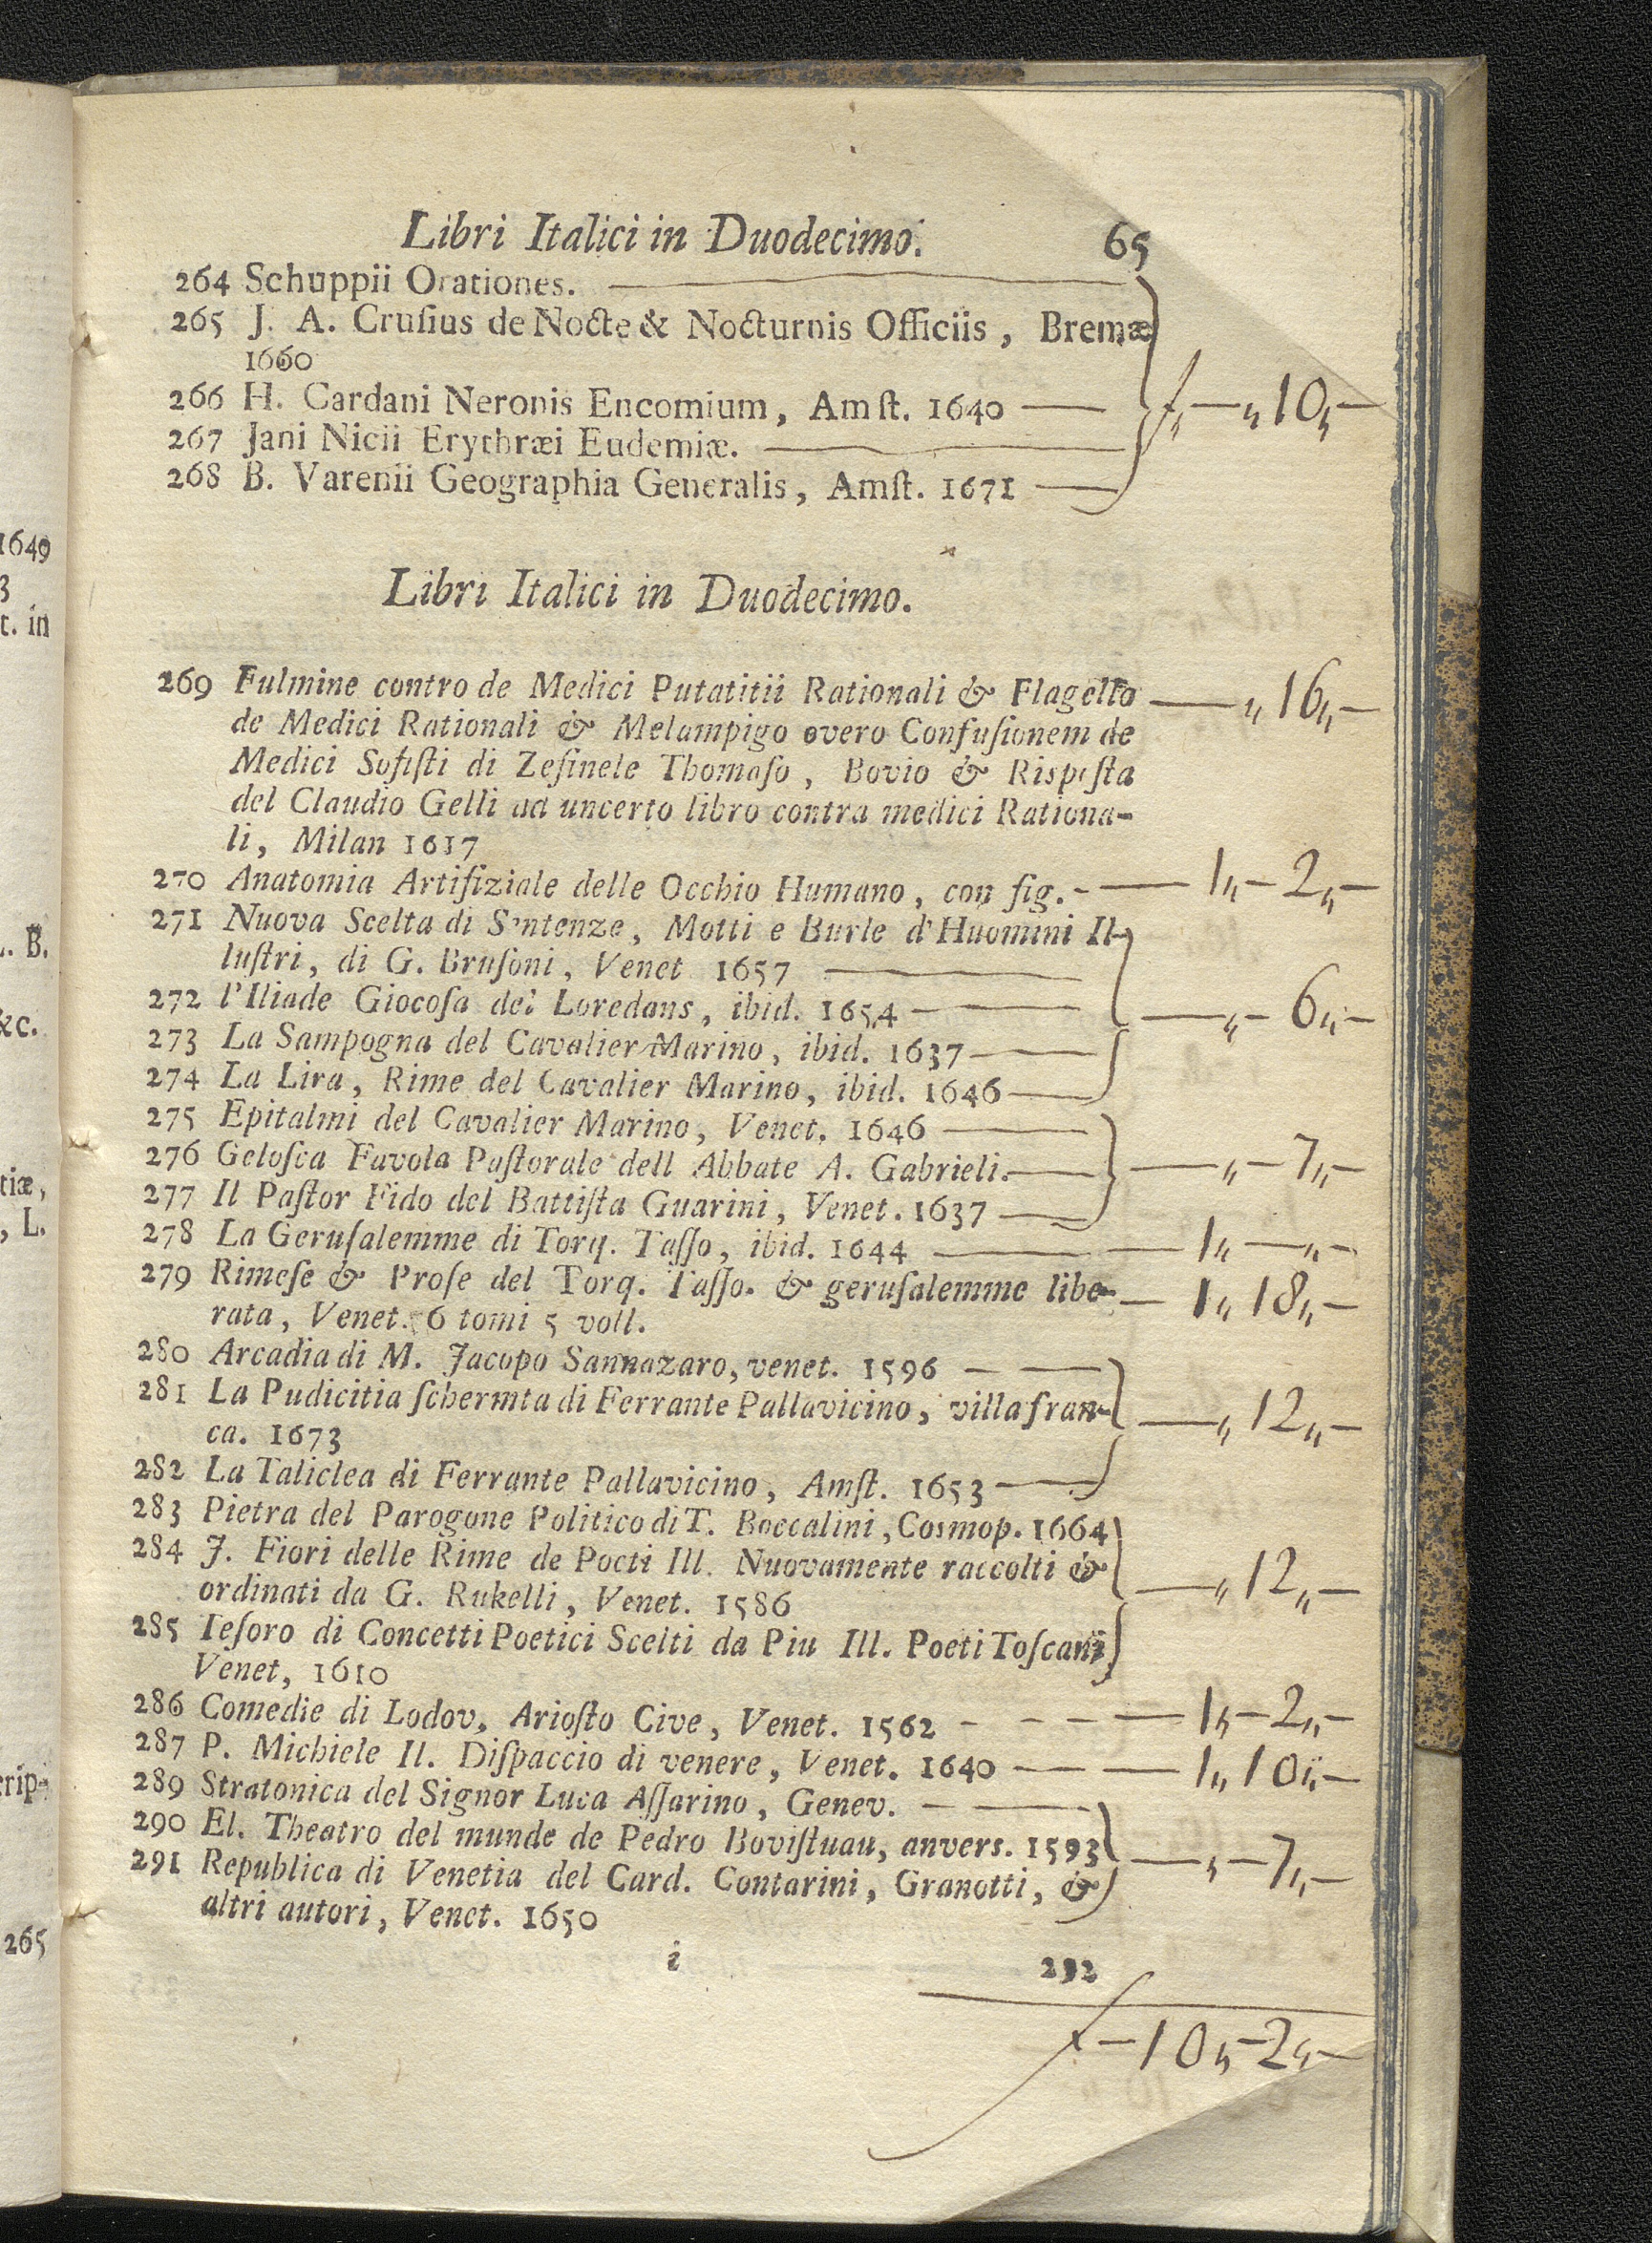 Libri Italici in Duodecimo. 65
264 Schuppii Orationes.
265 J. A. Cruſius de Nocte & Nocturnis Officiis, Bremæ
1660
266 H. Cardani Neronis Encomium, Amſt. 1640 — f „ — „ 10 „ —
267 Jani Nicii Erythræi Eudemiæ.
268 B. Varenii Geographia Generalis, Amſt. 1671
Libri Italici in Duodecimo.
269 Fulmine contro de Medici Putatitii Rationali & Flagello — „ 16 „ —
de Medici Rationali & Melampigo overo Confuſionem de
Medici Sofiſti di Zefinele Thomaſo, Bovio & Rispoſta
del Claudio Gelli ad uncerto libro contra medici Rationa-
li, Milan 1617
270 Anatomia Artifiziale delle Occhio Humano, con fig. — 1 „ — 2 „ —
271 Nuova Scelta di Sentenze, Motti e Burle d'Huomini Il-
luſtri, di G. Bruſoni, Venet 1657
272 l'Iliade Giocoſa del Loredans, ibid. 1654 — „ — 6 „ —
273 La Sampogna del Cavalier Marino, ibid. 1637
274 La Lira, Rime del Cavalier Marino, ibid. 1646
275 Epitalmi del Cavalier Marino, Venet. 1646
276 Geloſea Favola Paſtorale dell Abbate A. Gabrieli. — „ — 7 „ —
277 Il Paſtor Fido del Battiſta Guarini, Venet. 1637
278 La Geruſalemme di Torq. Taſſo, ibid. 1644 — 1 „ — „ —
279 Rimeſe & Proſe del Torq. Taſſo. & geruſalemme libe- — 1 „ 18 „ —
rata, Venet. 6 tomi 5 voll.
280 Arcadia di M. Jacopo Sannazaro, venet. 1596
281 La Pudicitia ſchermta di Ferrante Pallavicino, villafran- — „ 12 „ —
ca. 1673
282 La Taliclea di Ferrante Pallavicino, Amſt. 1653
283 Pietra del Parogone Politico di T. Boccalini, Cosmop. 1664
284 J. Fiori delle Rime de Poeti Ill. Nuovamente raccolti & — „ 12 „ —
ordinati da G. Rukelli, Venet. 1586
285 Teſoro di Concetti Poetici Scelti da Piu Ill. Poeti Toſcani
Venet, 1610
286 Comedie di Lodov, Arioſto Cive, Venet. 1562 — 1 „ — 2 „ —
287 P. Michiele Il. Diſpaccio di venere, Venet. 1640 — 1 „ 10 „ —
289 Stratonica del Signor Luca Aſſarino, Genev.
290 El. Theatro del munde de Pedro Boviſtuau, anvers. 1593 — „ — 7 „ —
291 Republica di Venetia del Card. Contarini, Granotti, &
altri autori, Venet. 1650
i 292
f — 10 „ — 2 „ —
1649
3
t. in
. B.
&c.
tiæ,
, L.
crip-
265